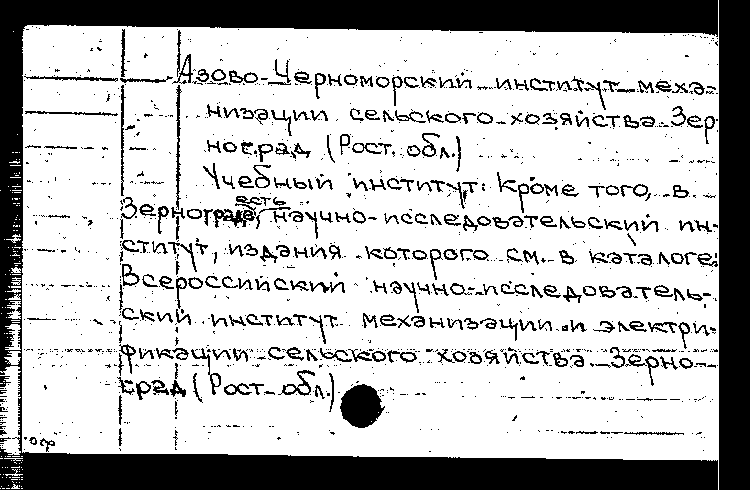 Азово-Черноморский институт меха-
низации сельского хозяйства. Зер
ноград (Рост. обл.)
Учебный институт. Кроме того, в
есть
Зернограде, научно-исследовательский ин-
ститут, издания которого см. в каталоге:
Всероссийский научно-исследователь-
ский институт механизации и электри-
фикации сельского хозяйства. Зерно-
град (Рост. обл.)